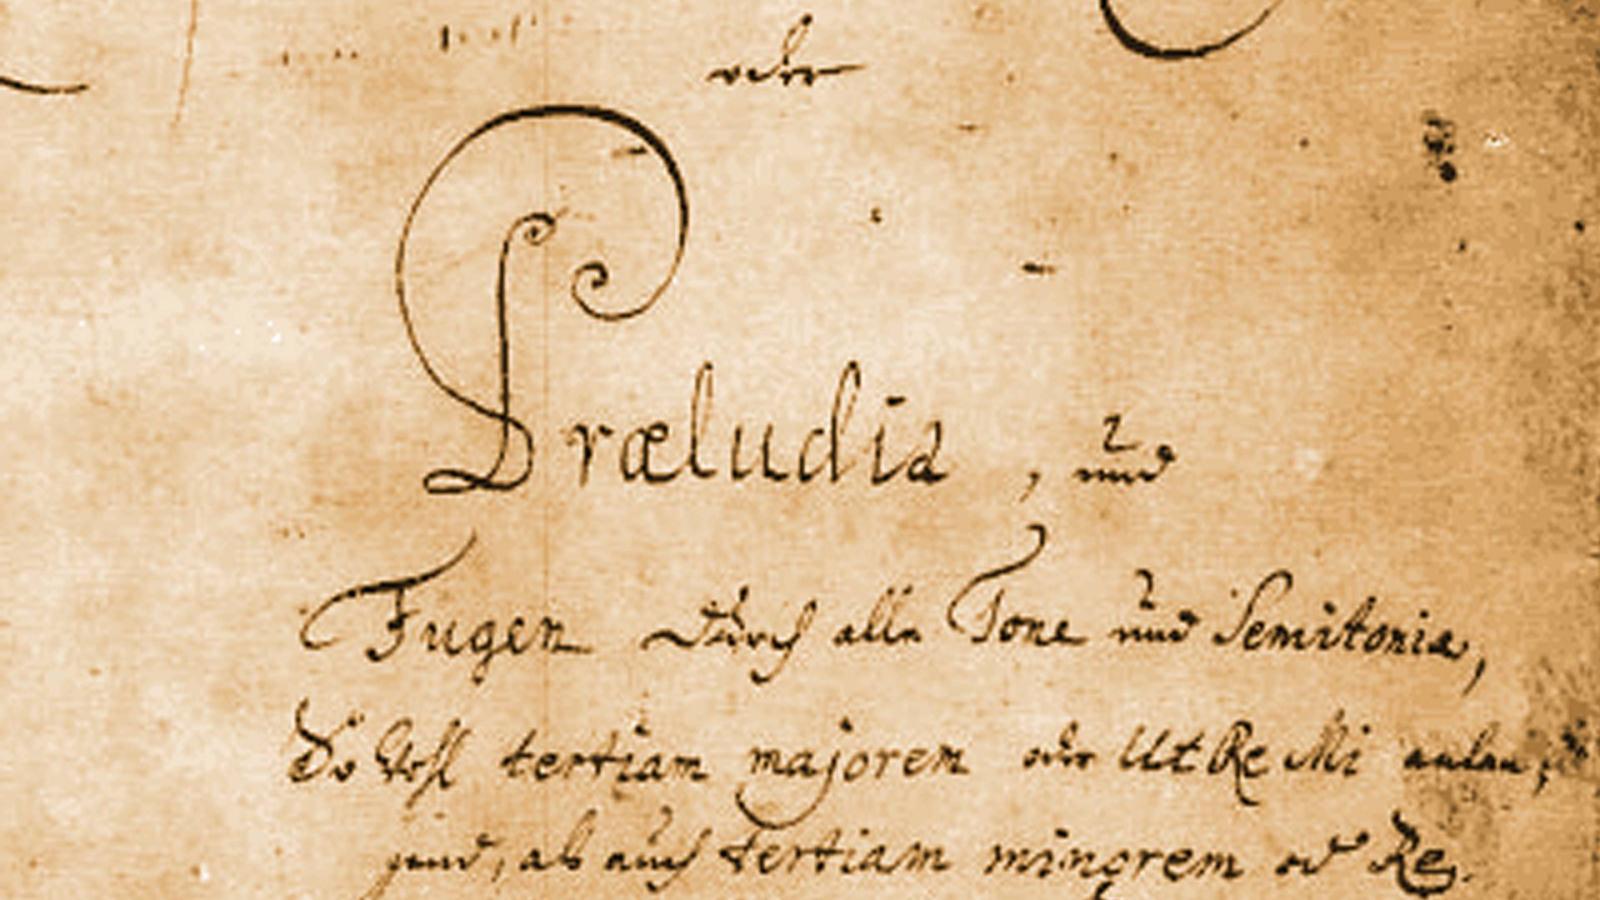 oder
Præludia, und
Fugen durch alle Tone und Semitonia,
So wohl tertiam majorem oder Ut Re Mi anlan,
gend, als auch tertiam minorem od Re